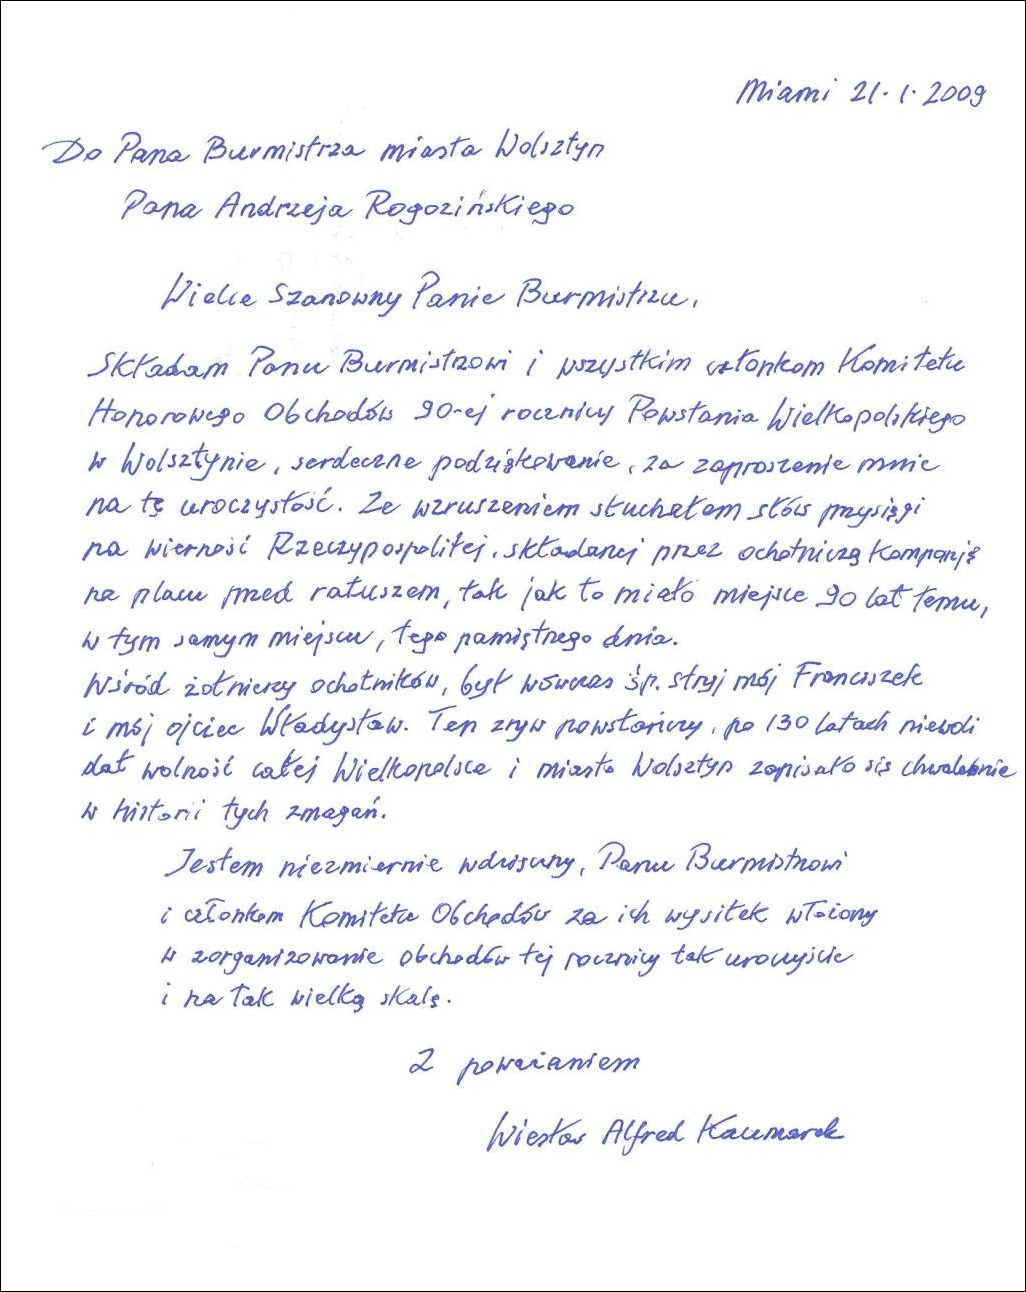 Miami 21.1.2009
Do Pana Burmistrza miasta Wolsztyn
Pana Andrzeja Rogozińskiego
Wielce Szanowny Panie Burmistrzu,
Składam Panu Burmistrzowi i wszystkim członkom Komitetu
Honorowego Obchodów 90-ej rocznicy Powstania Wielkopolskiego
w Wolsztynie, serdeczne podziękowanie, za zaproszenie mnie
na tę uroczystość. Ze wzruszeniem słuchałem słów przysięgi
na wierność Rzeczypospolitej, składanej przez ochotniczą kompanię
na placu przed ratuszem, tak jak to miało miejsce 90 lat temu,
w tym samym miejscu, tego pamiętnego dnia.
Wśród żołnierzy ochotników, był wówczas śp. stryj mój Franciszek
i mój ojciec Władysław. Ten zryw powstańczy, po 130 latach niewoli
dał wolność całej Wielkopolsce i miasto Wolsztyn zapisało się chwalebnie
w historii tych zmagań.
Jestem niezmiernie wdzięczny, Panu Burmistrzowi
i członkom Komitetu Obchodów za ich wysiłek włożony
w zorganizowanie obchodów tej rocznicy tak uroczyście
i na tak wielką skalę.
Z poważaniem
Wiesław Alfred Kaczmarek